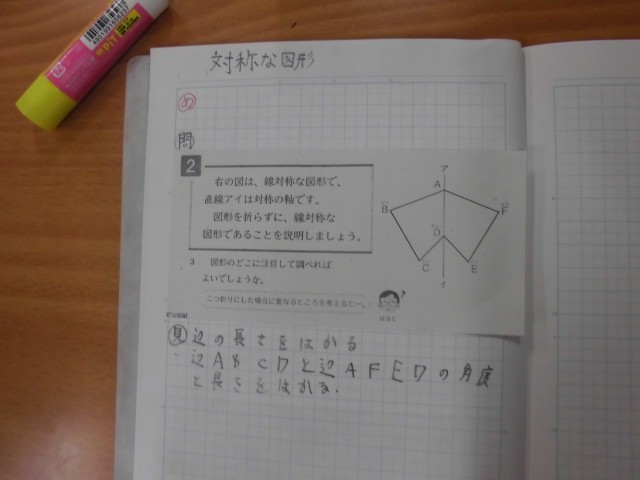 対称な図形
め
問
2
右の図は、線対称な図形で、
直線アイは対称の軸です。
図形を折らずに、線対称な
図形であることを説明しましょう。
3 図形のどこに注目して調べれば
よいでしょうか。
二つ折りにした場合に重なるところを考えると…。
ア
A
B
F
D
C
E
イ
はると
見 辺の長さをはかる
辺ABCDと辺AFEDの角度
と長さをはかる.
PiT